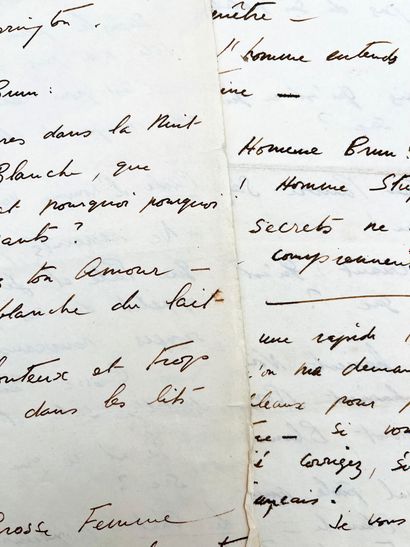 rrington.
Brun:
res dans la Nuit
Blanche, que
et pourquoi pourquoi
ants?
ton Amour —
blanche du lait
onteux et trops
dans les lits
Grosse Femme
enêtre —
l'homme entends
ine —
Homme Brun!
! Homme
secrets ne
comprennent
une rapide
on m'a deman
leaux pour p
— Si vou
corrigez,
ançais!
Je vous